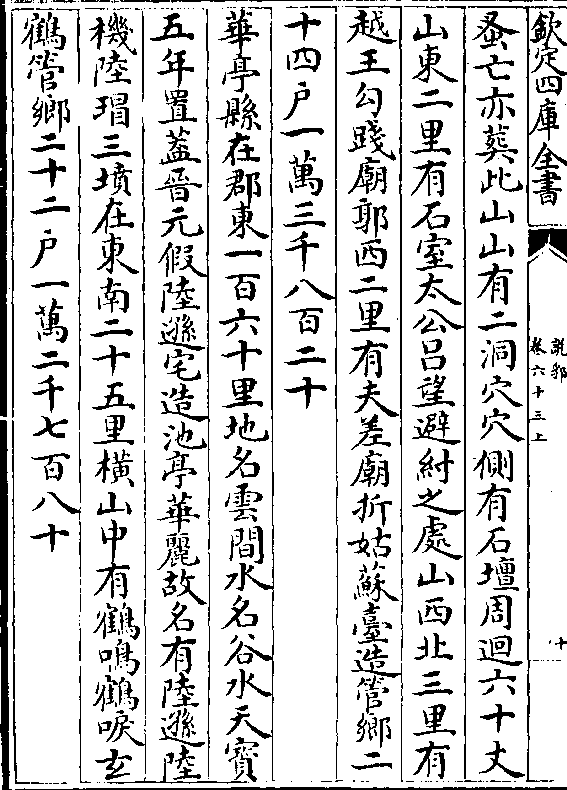 欽定四庫全書
說郛
卷六十三上
十
蚤亡亦葬此山山有二洞穴穴側有石壇周迴六十丈
山東二里有石室太公吕望避紂之處山西北三里有
越王勾踐廟郭西二里有夫差廟折姑蘇臺造管鄉二
十四户一萬三千八百二十
華亭縣在郡東一百六十里地名雲間水名谷水天寳
五年置蓋晉元假陸遜宅造池亭華麗故名有陸遜陸
機陸瑁三墳在東南二十五里横山中有鶴鳴鶴唳玄
鶴管鄉二十二户一萬二千七百八十